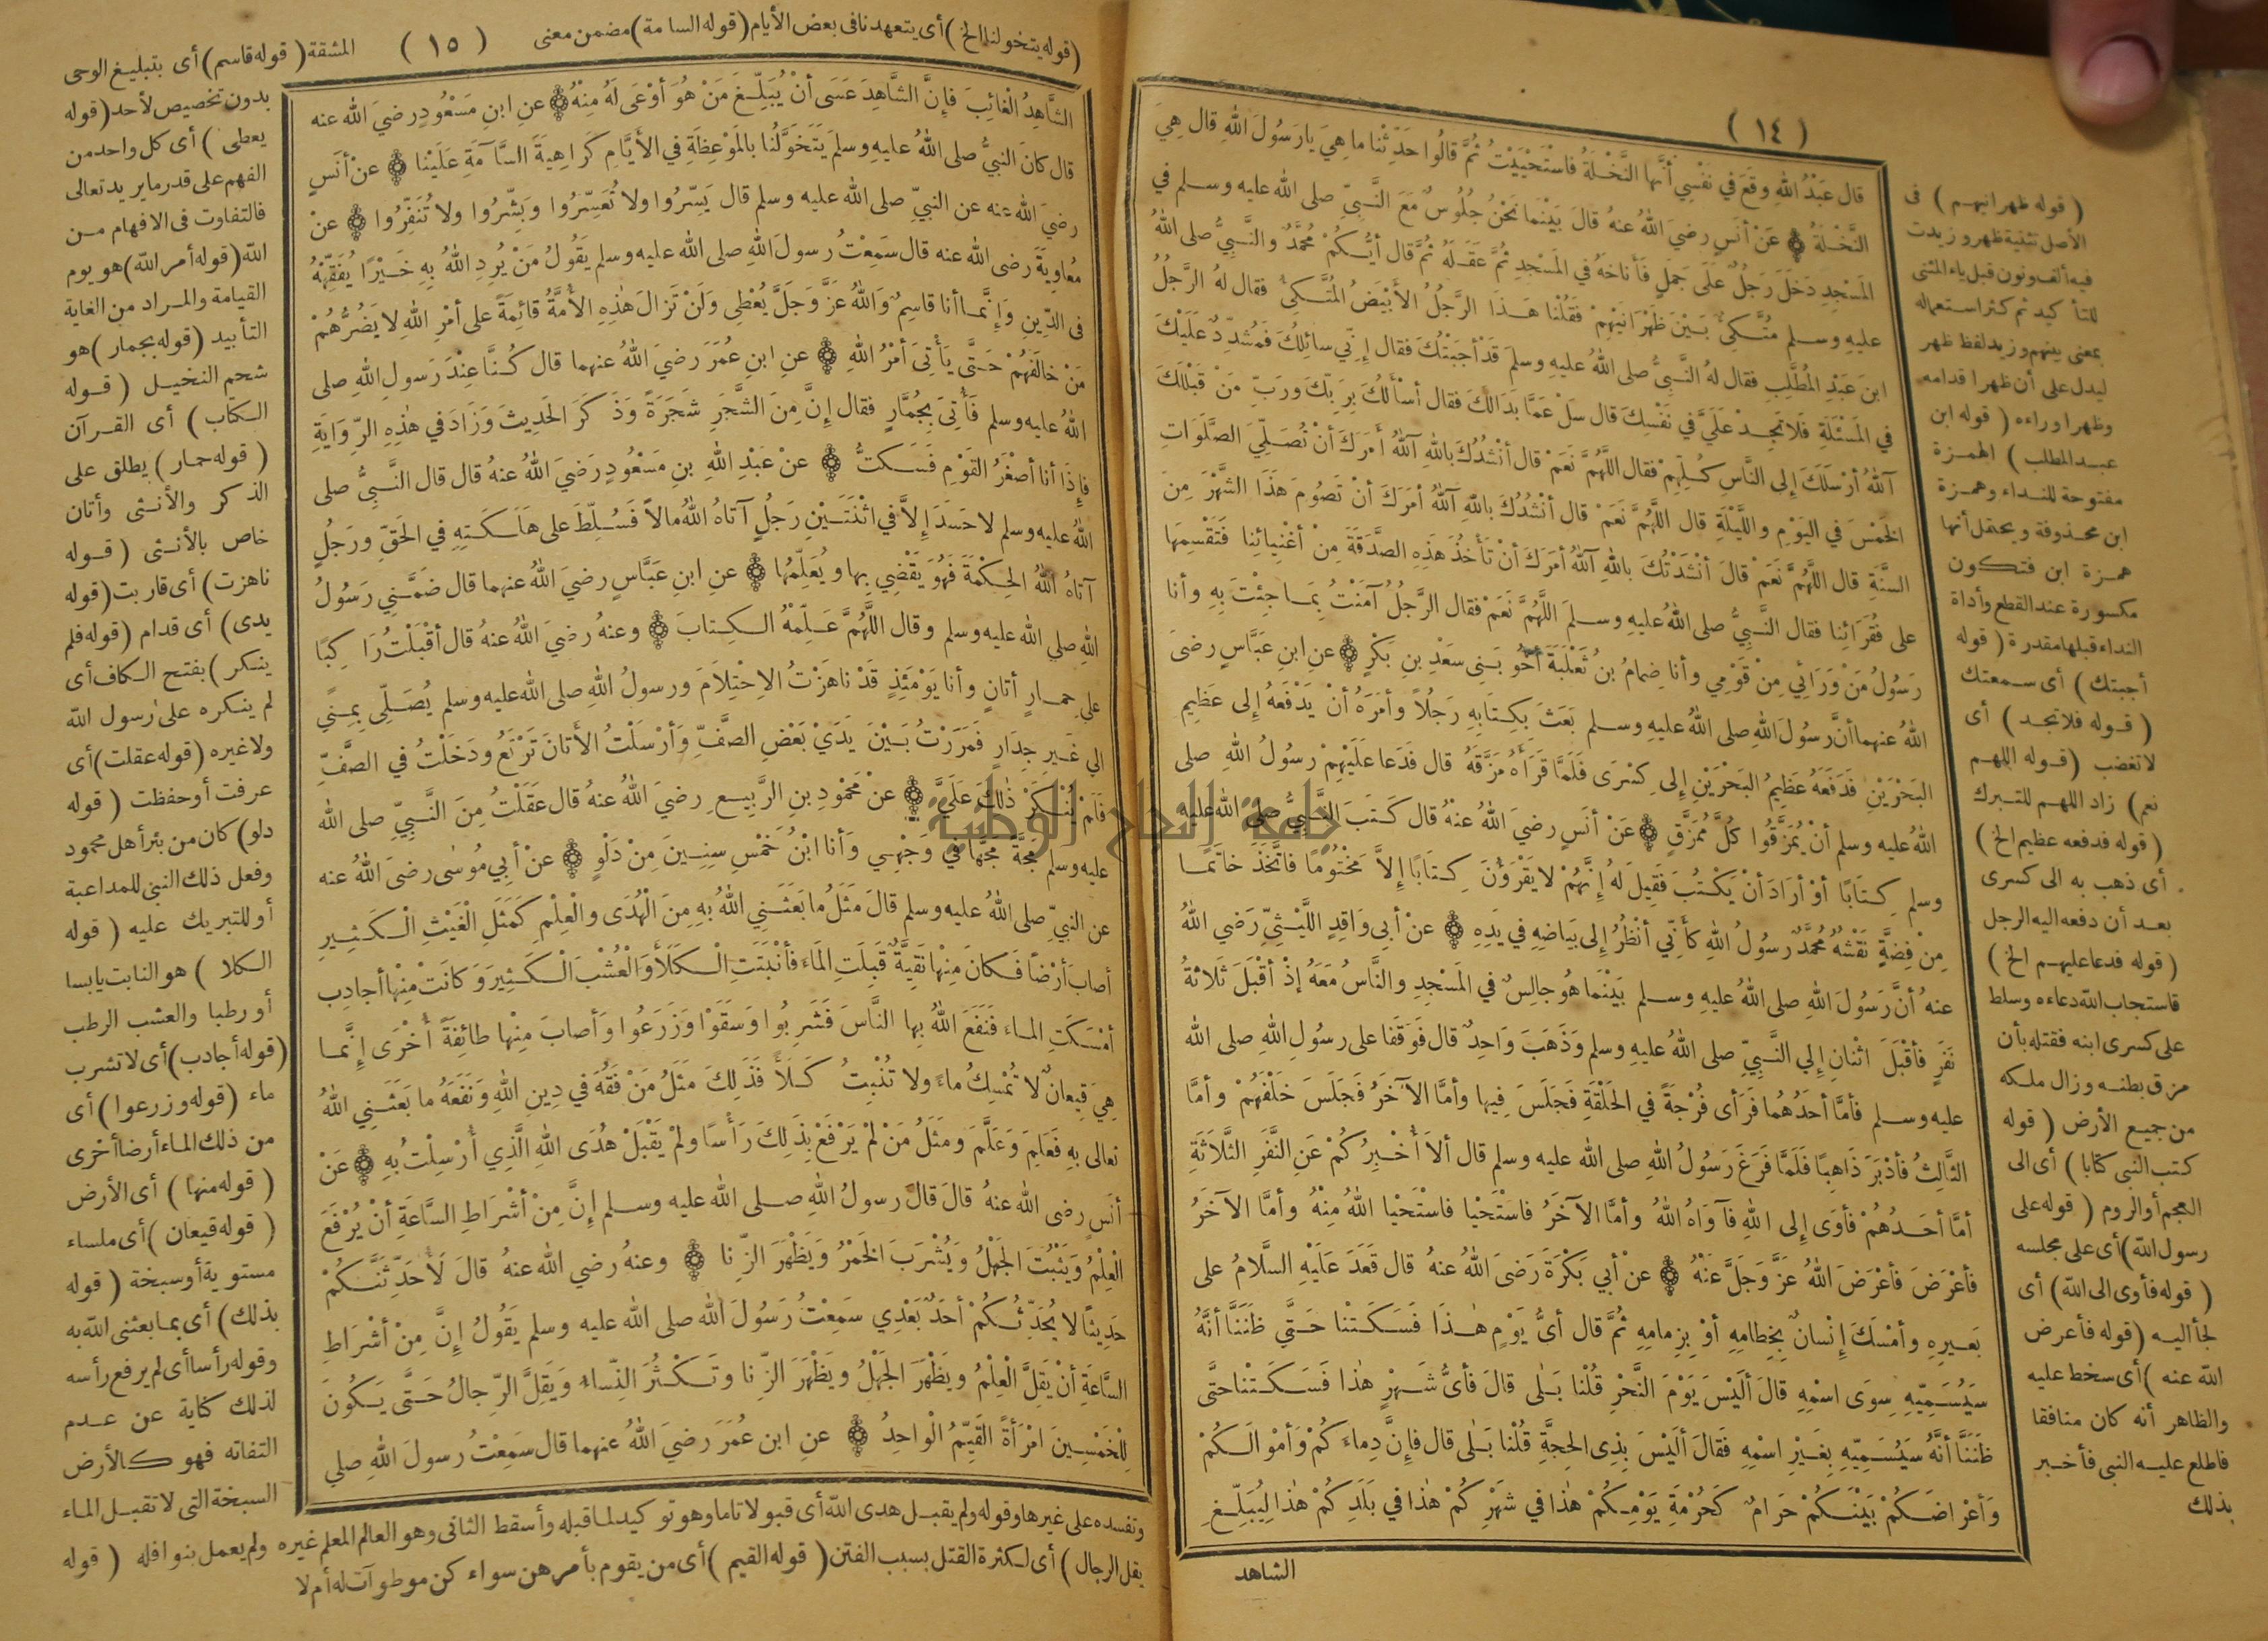 ( ١٤ )
قال عَبْدُ اللهِ وقَعَ في نَفْسِي أنَّها النَّخْلَةُ فاسْتَحْيَيْتُ ثُمَّ قالُوا حَدِّثْنا ما هِيَ يارَسُولَ اللهِ قال هِيَ
النَّخْلَةُ عَنْ أنَسٍ رضيَ اللهُ عنهُ قالَ بَيْنَما نَحْنُ جُلُوسٌ مَعَ النَّبِيِّ صلى الله عليه وسلم في
المَسْجِدِ دَخَلَ رَجُلٌ عَلَى جَمَلٍ فَأناخَهُ في المَسْجِدِ ثُمَّ عَقَلَهُ ثُمَّ قال أيُّكُمْ مُحَمَّدٌ والنَّبِيُّ صلى اللهُ
عليهِ وسلم مُتَّكِئٌ بَيْنَ ظَهْرَانَيْهِمْ فَقُلْنا هَذَا الرَّجُلُ الأبْيَضُ المُتَّكِئُ فقال لهُ الرَّجُلُ
ابنَ عَبْدِ المُطَّلِبِ فقال لهُ النَّبِيُّ صلى اللهُ عليهِ وسلمَ قَدْ أجَبْتُكَ فقال إِنِّي سائِلُكَ فَمُشَدِّدٌ عَلَيْكَ
في المَسْئَلَةِ فَلا تَجِدْ عَلَيَّ في نَفْسِكَ قال سَلْ عَمَّا بَدَالَكَ فقال أسْأَلُكَ بِرَبِّكَ ورَبِّ مَنْ قَبْلَكَ
آللهُ أرْسَلَكَ إلى النَّاسِ كُلِّهِمْ فقال اللَّهُمَّ نَعَمْ قال أنْشُدُكَ بِاللهِ آللهُ أمَرَكَ أنْ نُصَلِّيَ الصَّلَوَاتِ
الخَمْسَ في اليَوْمِ واللَّيْلَةِ قال اللَّهُمَّ نَعَمْ قال أنْشُدُكَ بِاللهِ آللهُ أمَرَكَ أنْ تَصُومَ هَذَا الشَّهْرَ مِنَ
السَّنَةِ قال اللَّهُمَّ نَعَمْ قالَ أنْشَدْتُكَ باللهِ آللهُ أمَرَكَ أنْ تَأْخُذَ هَذِهِ الصَّدَقَةَ مِنْ أغْنِيائِنا فَتَقْسِمَها
على فُقَرَائِنا فقال النَّبِيُّ صلى اللهُ عليهِ وسلمَ اللَّهُمَّ نَعَمْ فقال الرَّجُلُ آمَنْتُ بِما جِئْتَ بِهِ وأنا
رَسُولُ مَنْ وَرَائِي مِنْ قَوْمِي وأنا ضِمامُ بنُ ثَعْلَبَةَ أخُو بَنِي سَعْدِ بنِ بَكْرٍ عنِ ابنِ عَبَّاسٍ رضيَ
اللهُ عنهما أنَّ رَسُولَ اللهِ صلى اللهُ عليهِ وسلم بَعَثَ بِكِتابِهِ رَجُلاً وأمَرَهُ أنْ يَدْفَعَهُ إلى عَظِيمِ
البَحْرَيْنِ فَدَفَعَهُ عَظِيمُ البَحْرَيْنِ إلى كِسْرَى فَلَمَّا قَرَأهُ مَزَّقَهُ قال فَدَعا عَلَيْهِمْ رسُولُ اللهِ صلى
اللهُ عليه وسلم أنْ يُمَزَّقُوا كُلَّ مُمَزَّقٍ عَنْ أنَسٍ رضيَ اللهُ عنْهُ قال كَتَبَ النَّبِيُّ صلى الله عليه
وسلم كِتابًا أوْ أرَادَ أنْ يَكْتُبَ فَقِيلَ لَه إنَّهُمْ لايَقْرَؤُنَ كِتابًا إلاَّ مَخْتُومًا فاتَّخَذَ خاتَمًا
مِنْ فِضَّةٍ نَقْشُهُ مُحَمَّدٌ رسُولُ اللهِ كأنِّي أنْظُرُ إلى بَياضِهِ في يَدِهِ عنْ أبي وَاقِدٍ اللَّيْثِيِّ رَضي اللهُ
عنهُ أنَّ رَسُولَ اللهِ صلى اللهُ عليهِ وسلم بَيْنَما هُوَ جالِسٌ في المَسْجِدِ والنَّاسُ مَعَهُ إذْ أقْبَلَ ثَلاثَةُ
نَفَرٍ فأقْبَلَ اثْنانِ إلي النَّبِيِّ صلى اللهُ عليهِ وسلم وَذَهَبَ وَاحِدٌ قال فَوَقَفا على رسُولِ اللهِ صلى الله
عليه وسلم فأمَّا أحَدُهُما فَرَأى فُرْجَةً في الحَلْقَةِ فَجَلَسَ فِيها وأمَّا الآخَرُ فَجَلَسَ خَلْفَهُمْ وأمَّا
الثَّالِثُ فأدْبَرَ ذَاهِبًا فَلَمَّا فَرَغَ رَسُولُ اللهِ صلى الله عليه وسلم قال ألاَ أُخْبِرُكُمْ عَنِ النَّفَرِ الثَّلَاثَةِ
أمَّا أحَدُهُمْ فأوَى إلى اللهِ فآوَاهُ اللهُ وأمَّا الآخَرُ فاسْتَحْيا فاسْتَحْيا اللهُ مِنْهُ وأمَّا الآخَرُ
فأعْرَضَ فأعْرَضَ اللهُ عَزَّ وَجَلَّ عَنْهُ عنْ أبي بَكْرَةَ رَضيَ اللهُ عنهُ قال قَعَدَ عَلَيْهِ السلامُ على
بَعيرِهِ وأمْسَكَ إنْسانٌ بِخِطامِهِ أوْ بِزِمامِهِ ثُمَّ قال أيُّ يَوْمٍ هذَا فَسَكَتْنا حَتَّى ظَنَنَّا أنَّهُ
سَيُسَمِّيهِ سِوَى اسْمِهِ قالَ ألَيْسَ يَوْمَ النَّحْرِ قُلْنا بَلى قالَ فأيُّ شَهْرٍ هذا فَسَكَتْنا حتَّى
ظَنَنَّا أنَّهُ سَيُسَمِّيهِ بِغَيْرِ اسْمِهِ فَقالَ ألَيْسَ بِذِي الحِجَّةِ قُلْنا بَلى قال فإنَّ دِماءَكُمْ وَأمْوالَكُمْ
وَأعْرَاضَكُمْ بَيْنَكُمْ حَرَامٌ كَحُرْمَةِ يَوْمِكُمْ هذا في شَهْرِكُمْ هذا في بَلَدِكُمْ هذا لِيُبَلِّغِ
الشاهد
( قوله ظهرانيهم ) فى
الأصل تثنية ظهر وزيدت
فيه ألف ونون قبل ياء المثنى
للتأكيد ثم كثر استعماله
بمعنى بينهم وزيد لفظ ظهر
ليدل على أن ظهرا قدامه
وظهرا وراءه ( قوله ابن
عبد المطلب ) الهمزة
مفتوحة للنداء وهمزة
ابن محذوفة ويحتمل أنها
همزة ابن فتكون
مكسورة عند القطع وأداة
النداء قبلها مقدرة ( قوله
أجبتك ) أى سمعتك
( قوله فلا تجد ) أى
لا تغضب ( قوله اللهم
نعم ) زاد اللهم للتبرك
( قوله فدفعه عظيم الخ )
أى ذهب به الى كسرى
بعد أن دفعه اليه الرجل
( قوله فدعا عليهم الخ )
فاستجاب الله دعاءه وسلط
على كسرى ابنه فقتله بأن
مزق بطنه وزال ملكه
من جميع الأرض ( قوله
كتب النبى كتابا ) أى الى
العجم أو الروم ( قوله على
رسول الله ) أى على مجلسه
( قوله فأوى الى الله ) أى
لجأ اليه ( قوله فأعرض
الله عنه ) أى سخط عليه
والظاهر أنه كان منافقا
فاطلع عليه النبى فأخبر
بذلك
( قوله يتخولنا الخ ) أى يتعهدنا فى بعض الأيام ( قوله السامة ) مضمن معنى ( ١٥ ) المشقة ( قوله قاسم ) أى بتبليغ الوحى
الشَّاهِدُ الْغائِبَ فإِنَّ الشَّاهِدَ عَسَى أنْ يُبَلِّغَ مَنْ هُوَ أوْعَى لَهُ مِنْهُ عنِ ابنِ مَسْعُودٍ رضيَ الله عنه
قال كانَ النبيُّ صلى اللهُ عليهِ وسلمَ يَتَخَوَّلُنا بالمَوْعِظَةِ في الأيَّامِ كَرَاهِيةَ السَّآمَةِ عَلَيْنا عنْ أنَسٍ
رضيَ الله عنه عن النبيِّ صلى الله عليه وسلم قال يَسِّرُوا ولا تُعَسِّرُوا وبَشِّرُوا ولا تُنَفِّرُوا عنْ
مُعاوِيَةَ رضى الله عنه قال سَمِعْتُ رسولَ اللهِ صلى الله عليه وسلم يَقُولُ مَنْ يُرِدِ اللهُ بِهِ خَيْرًا يُفَقِّهْهُ
فى الدِّينِ وإِنَّما أنا قاسِمٌ وَاللهُ عَزَّ وَجَلَّ يُعْطِي وَلَنْ تَزالَ هذِهِ الأمَّةُ قائِمَةً على أمْرِ اللهِ لا يَضُرُّهُمْ
مَنْ خالَفَهُمْ حَتَّى يَأْتِيَ أمْرُ اللهِ عنِ ابنِ عُمَرَ رضيَ اللهُ عنهما قال كُنَّا عِنْدَ رَسولِ اللهِ صلى
اللهُ عليه وسلم فَأُتِيَ بِجُمَّارٍ فقال إنَّ مِنَ الشَّجَرِ شَجَرَةً وَذَكَرَ الحَدِيثَ وَزَادَ في هذِهِ الرِّوَايَةِ
فإذَا أنا أصْغَرُ القَوْمِ فَسَكَتُّ عنْ عَبْدِ اللهِ بنِ مَسْعُودٍ رَضيَ اللهُ عنهُ قال قال النَّبِيُّ صلى
اللهُ عليه وسلم لا حَسَدَ إلاَّ في اثْنَتَيْنِ رَجُلٍ آتاهُ اللهُ مالاً فَسُلِّطَ على هَلَكَتِهِ في الحَقِّ ورَجُلٍ
آتاهُ اللهُ الحِكْمَةَ فَهُوَ يَقْضِي بِها ويُعَلِّمُها عنِ ابنِ عَبَّاسٍ رضيَ اللهُ عنهما قال ضَمَّنِي رَسُولُ
اللهِ صلى الله عليه وسلم وقال اللَّهُمَّ عَلِّمْهُ الكِتابَ وعنهُ رضيَ اللهُ عنهُ قال أقْبَلْتُ رَاكِبًا
على حِمارٍ أتانٍ وأنا يَوْمَئِذٍ قَدْ ناهَزْتُ الاِحْتِلاَمَ ورسولُ اللهِ صلى الله عليه وسلم يُصَلِّي بِمِنًى
الي غَيرِ جِدَارٍ فَمَرَرْتُ بَيْنَ يَدَيْ بَعْضِ الصَّفِّ وَأرْسَلْتُ الأتانَ تَرْتَعُ ودَخَلْتُ في الصَّفِّ
فَلَمْ يُنْكَرْ ذلِكَ عَلَيَّ عنْ مَحْمُودِ بنِ الرَّبِيعِ رضيَ اللهُ عنهُ قال عَقَلْتُ مِنَ النَّبِيِّ صلى الله
عليه وسلم مَجَّةً مَجَّها في وَجْهِي وَأنا ابْنُ خَمْسِ سِنِينَ مِنْ دَلْوٍ عنْ أبِي مُوسى رضىَ اللهُ عنه
عن النبيِّ صلى اللهُ عليه وسلم قالَ مَثَلُ ما بَعَثَنِي اللهُ بِهِ مِنَ الْهُدَى والْعِلْمِ كَمَثَلِ الْغَيْثِ الْكَثِيرِ
أصابَ أرْضًا فَكانَ مِنْها نَقِيَّةٌ قَبِلَتِ المَاءَ فأنْبَتَتِ الْكَلَأَ وَالْعُشْبَ الْكَثِيرَ وَكانَتْ مِنْها أجادِبُ
أمْسَكَتِ الماءَ فَنَفَعَ اللهُ بِها النَّاسَ فَشَرِبُوا وَسَقَوْا وَزَرَعُوا وَأصابَ مِنْها طائِفَةً أُخْرَى إنَّما
هِيَ قِيعانٌ لا تُمْسِكُ ماءً ولا تُنْبِتُ كَلَأً فَذَلِكَ مَثَلُ مَنْ فَقُهَ في دِينِ اللهِ وَنَفَعَهُ ما بَعَثَنِي اللهُ
تعالى بِهِ فَعَلِمَ وَعَلَّمَ ومَثَلُ مَنْ لَمْ يَرْفَعْ بِذَلِكَ رَأسًا ولَمْ يَقْبَلْ هُدَى اللهِ الَّذِي أُرْسِلْتُ بِهِ عَنْ
أنَسٍ رضى الله عنهُ قالَ قالَ رسولُ اللهِ صلى الله عليه وسلم إنَّ مِنْ أشْرَاطِ السَّاعَةِ أنْ يُرْفَعَ
الْعِلْمُ وَيَثْبُتَ الجَهْلُ وَيُشْرَبَ الخَمْرُ وَيَظْهَرَ الزِّنا وعنهُ رضي الله عنهُ قالَ لَأُحَدِّثَنَّكُمْ
حَدِيثًا لا يُحَدِّثُكُمْ أحَدٌ بَعْدِي سَمِعْتُ رَسُولَ اللهِ صلى الله عليه وسلم يَقُولُ إنَّ مِنْ أشْرَاطِ
السَّاعَةِ أنْ يَقِلَّ الْعِلْمُ ويَظْهَرَ الجَهْلُ ويَظْهَرَ الزِّنا وتَكْثُرَ النِّساءُ ويَقِلَّ الرِّجالُ حَتَّى يَكُونَ
لِلْخَمْسِينَ امْرَأةً القَيِّمُ الْوَاحِدُ عنِ ابنِ عُمَرَ رضيَ اللهُ عنهما قال سَمِعْتُ رسولَ اللهِ صلي
بدون تخصيص لأحد ( قوله
يعطى ) أى كل واحد من
الفهم على قدر ما يريد تعالى
فالتفاوت فى الافهام من
الله ( قوله أمر الله ) هو يوم
القيامة والمراد من الغاية
التأبيد ( قوله بجمار ) هو
شحم النخيل ( قوله
الكتاب ) أى القرآن
( قوله حمار ) يطلق على
الذكر والأنثى وأتان
خاص بالأنثى ( قوله
ناهزت ) أى قاربت ( قوله
يدى ) أى قدام ( قوله فلم
ينكر ) بفتح الكاف أى
لم ينكره على رسول الله
ولا غيره ( قوله عقلت ) أى
عرفت أو حفظت ( قوله
دلو ) كان من بئر أهل محمود
وفعل ذلك النبى للمداعبة
أو للتبريك عليه ( قوله
الكلا ) هو النابت يابسا
أو رطبا والعشب الرطب
( قوله أجادب ) أى لا تشرب
ماء ( قوله وزرعوا ) أى
من ذلك الماء أرضا أخرى
( قوله منها ) أى الأرض
( قوله قيعان ) أى ملساء
مستوية أو سبخة ( قوله
بذلك ) أى بما بعثنى الله به
وقوله رأسا أى لم يرفع رأسه
لذلك كناية عن عدم
التفاته فهو كالأرض
السبخة التى لا تقبل الماء
وتفسده على غيرها وقوله ولم يقبل هدى الله أى قبولا تاما وهو توكيد لما قبله وأسقط الثانى وهو العالم المعلم غيره ولم يعمل بنوافله ( قوله
يقل الرجال ) أى لكثرة القتل بسبب الفتن ( قوله القيم ) أى من يقوم بأمرهن سواء كن موطوآت له أم لا
جامعة النجاح الوطنية